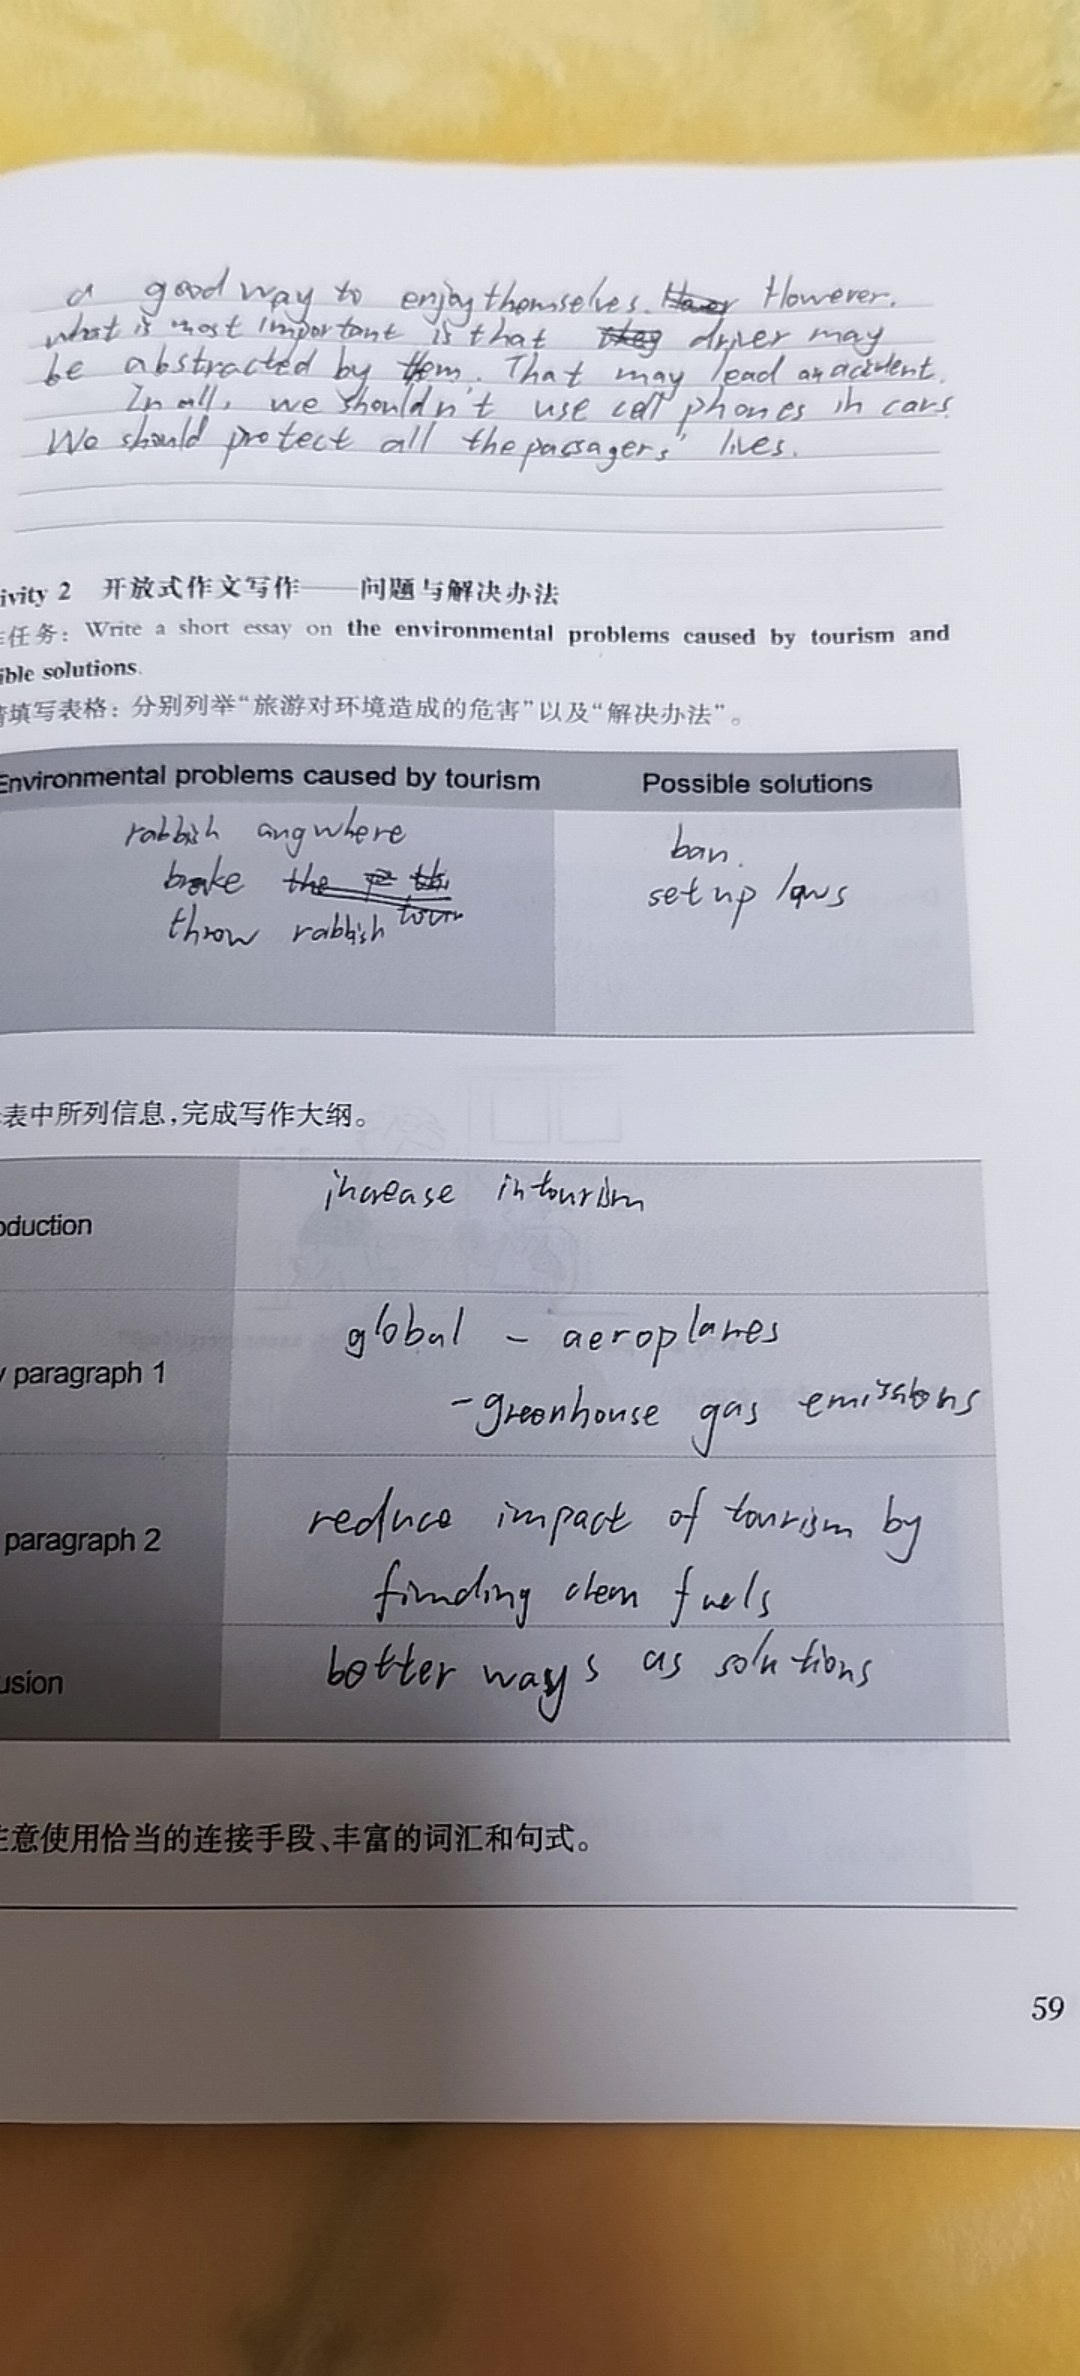 a good way to enjoy themselves. However,
what is most important is that driver may
be abstracted by them. That may lead an accident.
In all, we shouldn't use cell phones in cars.
We should protect all the passagers' lives.
ivity 2 开放式作文写作——问题与解决办法
任务：Write a short essay on the environmental problems caused by tourism and
ible solutions.
填写表格：分别列举“旅游对环境造成的危害”以及“解决办法”。
Environmental problems caused by tourism Possible solutions
rabbish anywhere
brake the
throw rabbish
ban.
set up laws
表中所列信息，完成写作大纲。
oduction increase in tourism
global - aeroplanes
y paragraph 1
- greenhouse gas emissions
paragraph 2 reduce impact of tourism by
finding clean fuels
usion better ways as solutions
注意使用恰当的连接手段、丰富的词汇和句式。
59